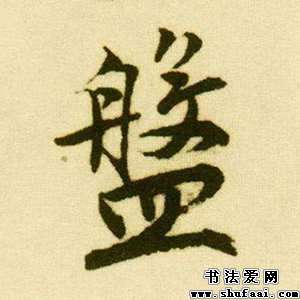 盤
书法爱网
www.shufaai.com